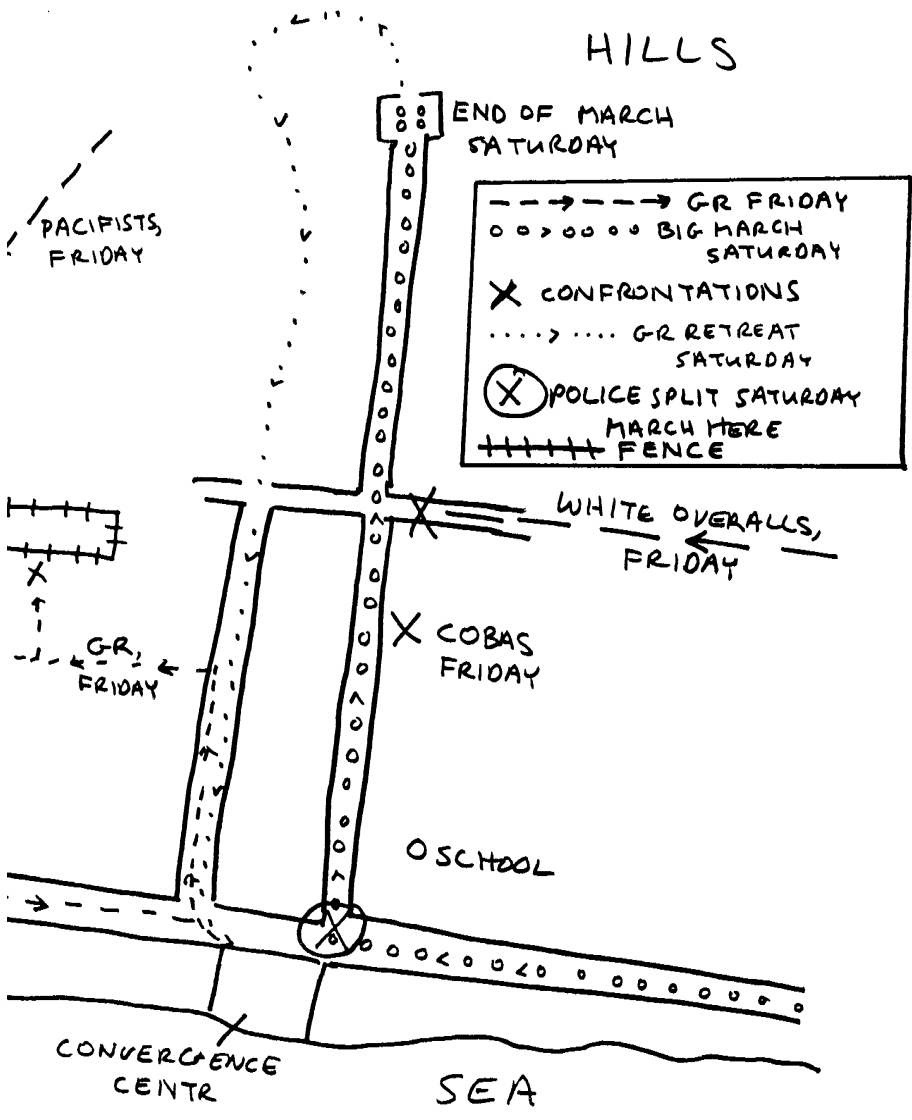 HILLS
END OF MARCH
SATURDAY
PACIFISTS,
FRIDAY
GR FRIDAY
BIG MARCH
SATURDAY
X CONFRONTATIONS
GR RETREAT
SATURDAY
X POLICE SPLIT SATURDAY
MARCH HERE
FENCE
WHITE OVERALLS,
FRIDAY
X COBAS
FRIDAY
GR,
FRIDAY
SCHOOL
CONVERGENCE
CENTR
SEA